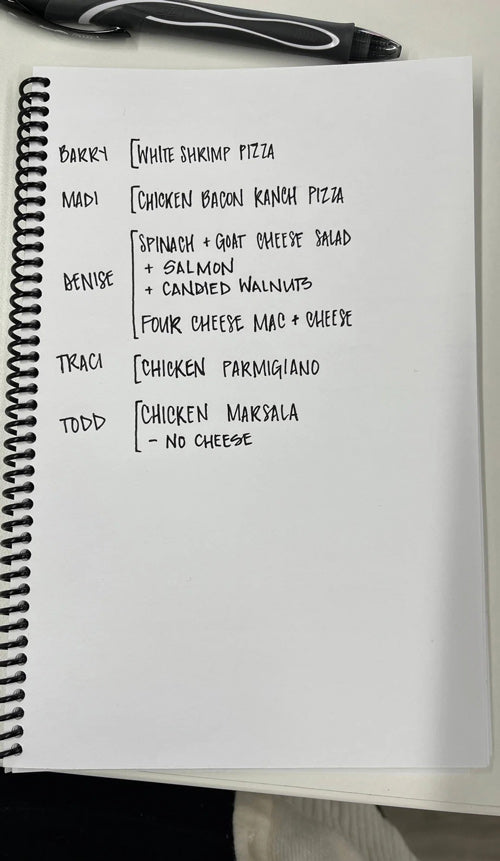 BARRY [WHITE SHRIMP PIZZA
MADI [CHICKEN BACON RANCH PIZZA
DENISE [SPINACH + GOAT CHEESE SALAD
+ SALMON
+ CANDIED WALNUTS
FOUR CHEESE MAC + CHEESE
TRACI [CHICKEN PARMIGIANO
TODD [CHICKEN MARSALA
- NO CHEESE